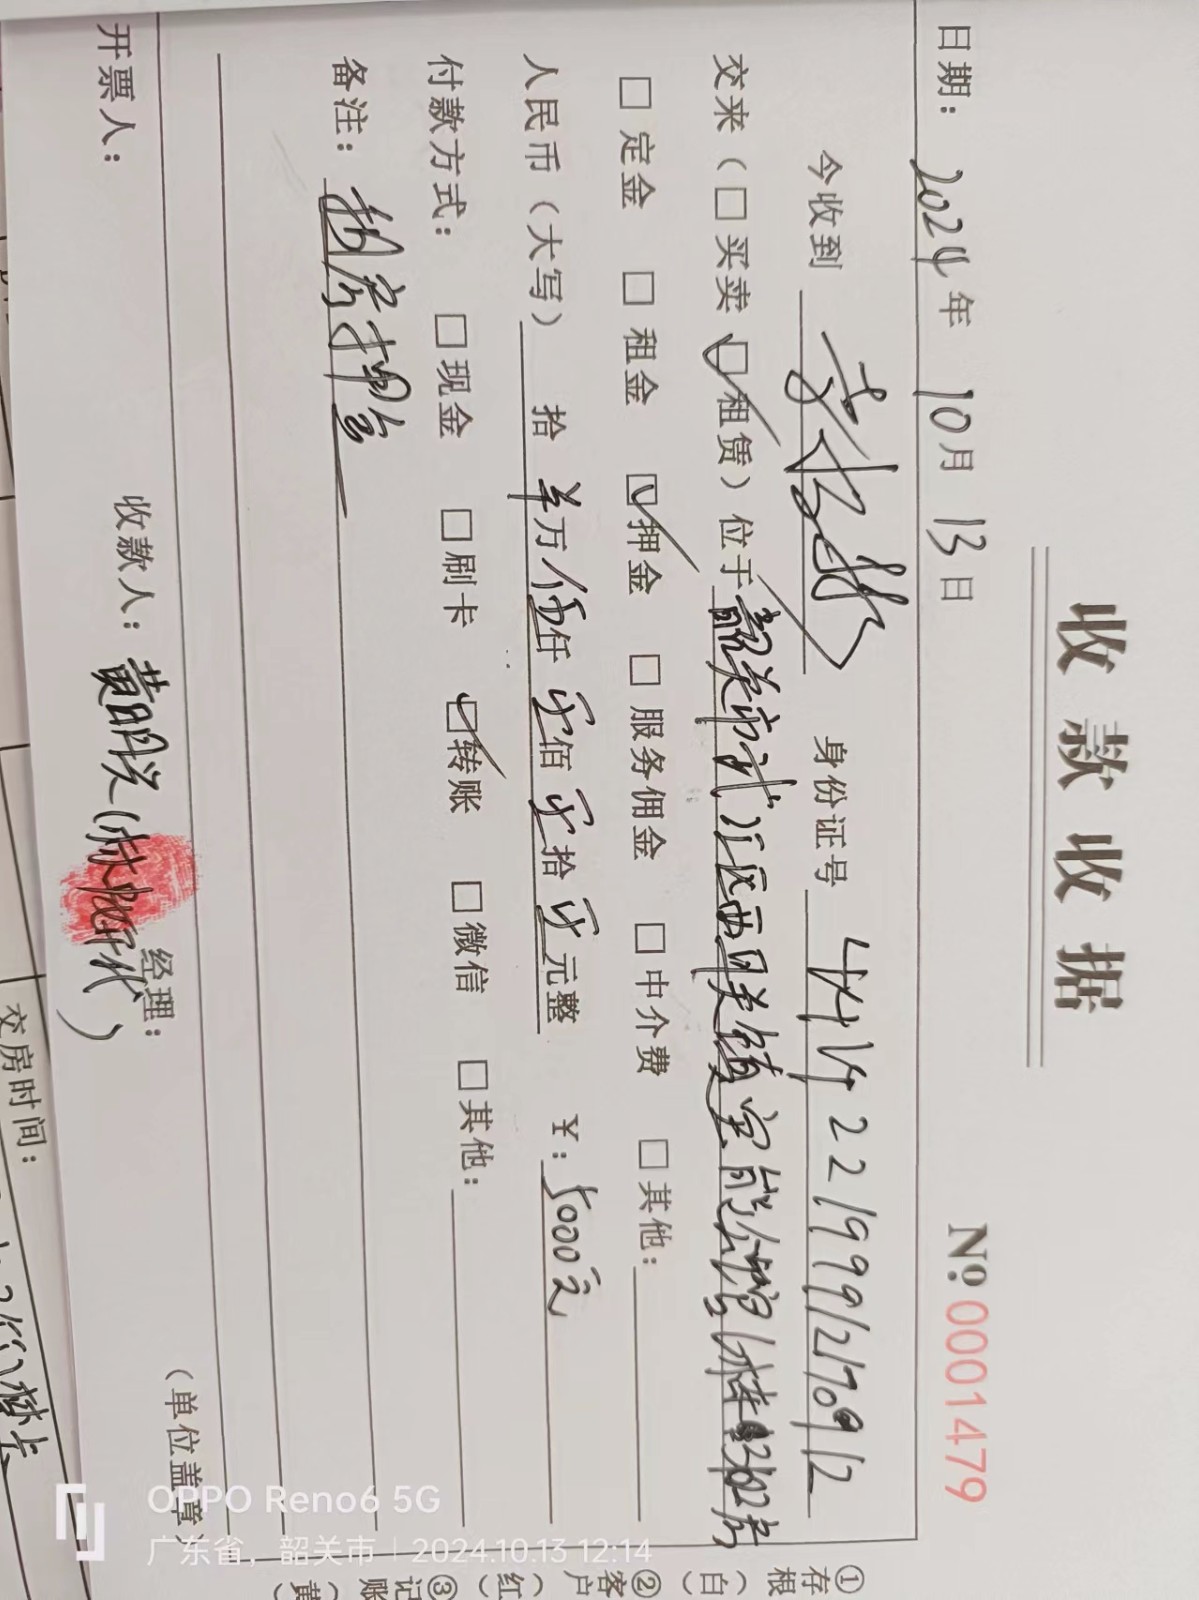 收款收据
№ 0001479
日期: 2024 年 10 月 13 日
今收到 身份证号
交来（□买卖 ☑租赁）位于 韶关市浈江区 302房
□定金 □租金 ☑押金 □服务佣金 □中介费 □其他:
人民币（大写） 拾 万 伍仟 零佰 零拾 零元整 ¥: 5000元
付款方式: □现金 □刷卡 ☑转账 □微信 □其他:
备注: 租房押金
开票人: 收款人: 黄明兴( 代) 经理: （单位盖章）
①存根（白） ②客户（红） ③记账（黄
交房时间:
OPPO Reno6 5G
广东省，韶关市 | 2024.10.13 12:14